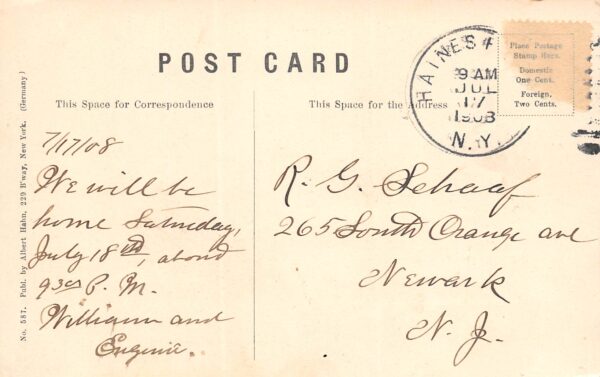 POST CARD
This Space for Correspondence
This Space for the Address
HAINES
9 AM
JUL
17
1908
N.Y.
Place Postage
Stamp Here.
Domestic
One Cent.
Foreign,
Two Cents.
No. 587. Publ. by Albert Hahn, 229 B'way, New York. (Germany)
7/17/08
We will be
home Saturday,
July 18th, about
9 30 P. M.
William and
Eugenie.
R. G. Schaaf
265 South Orange ave
Newark
N. J.